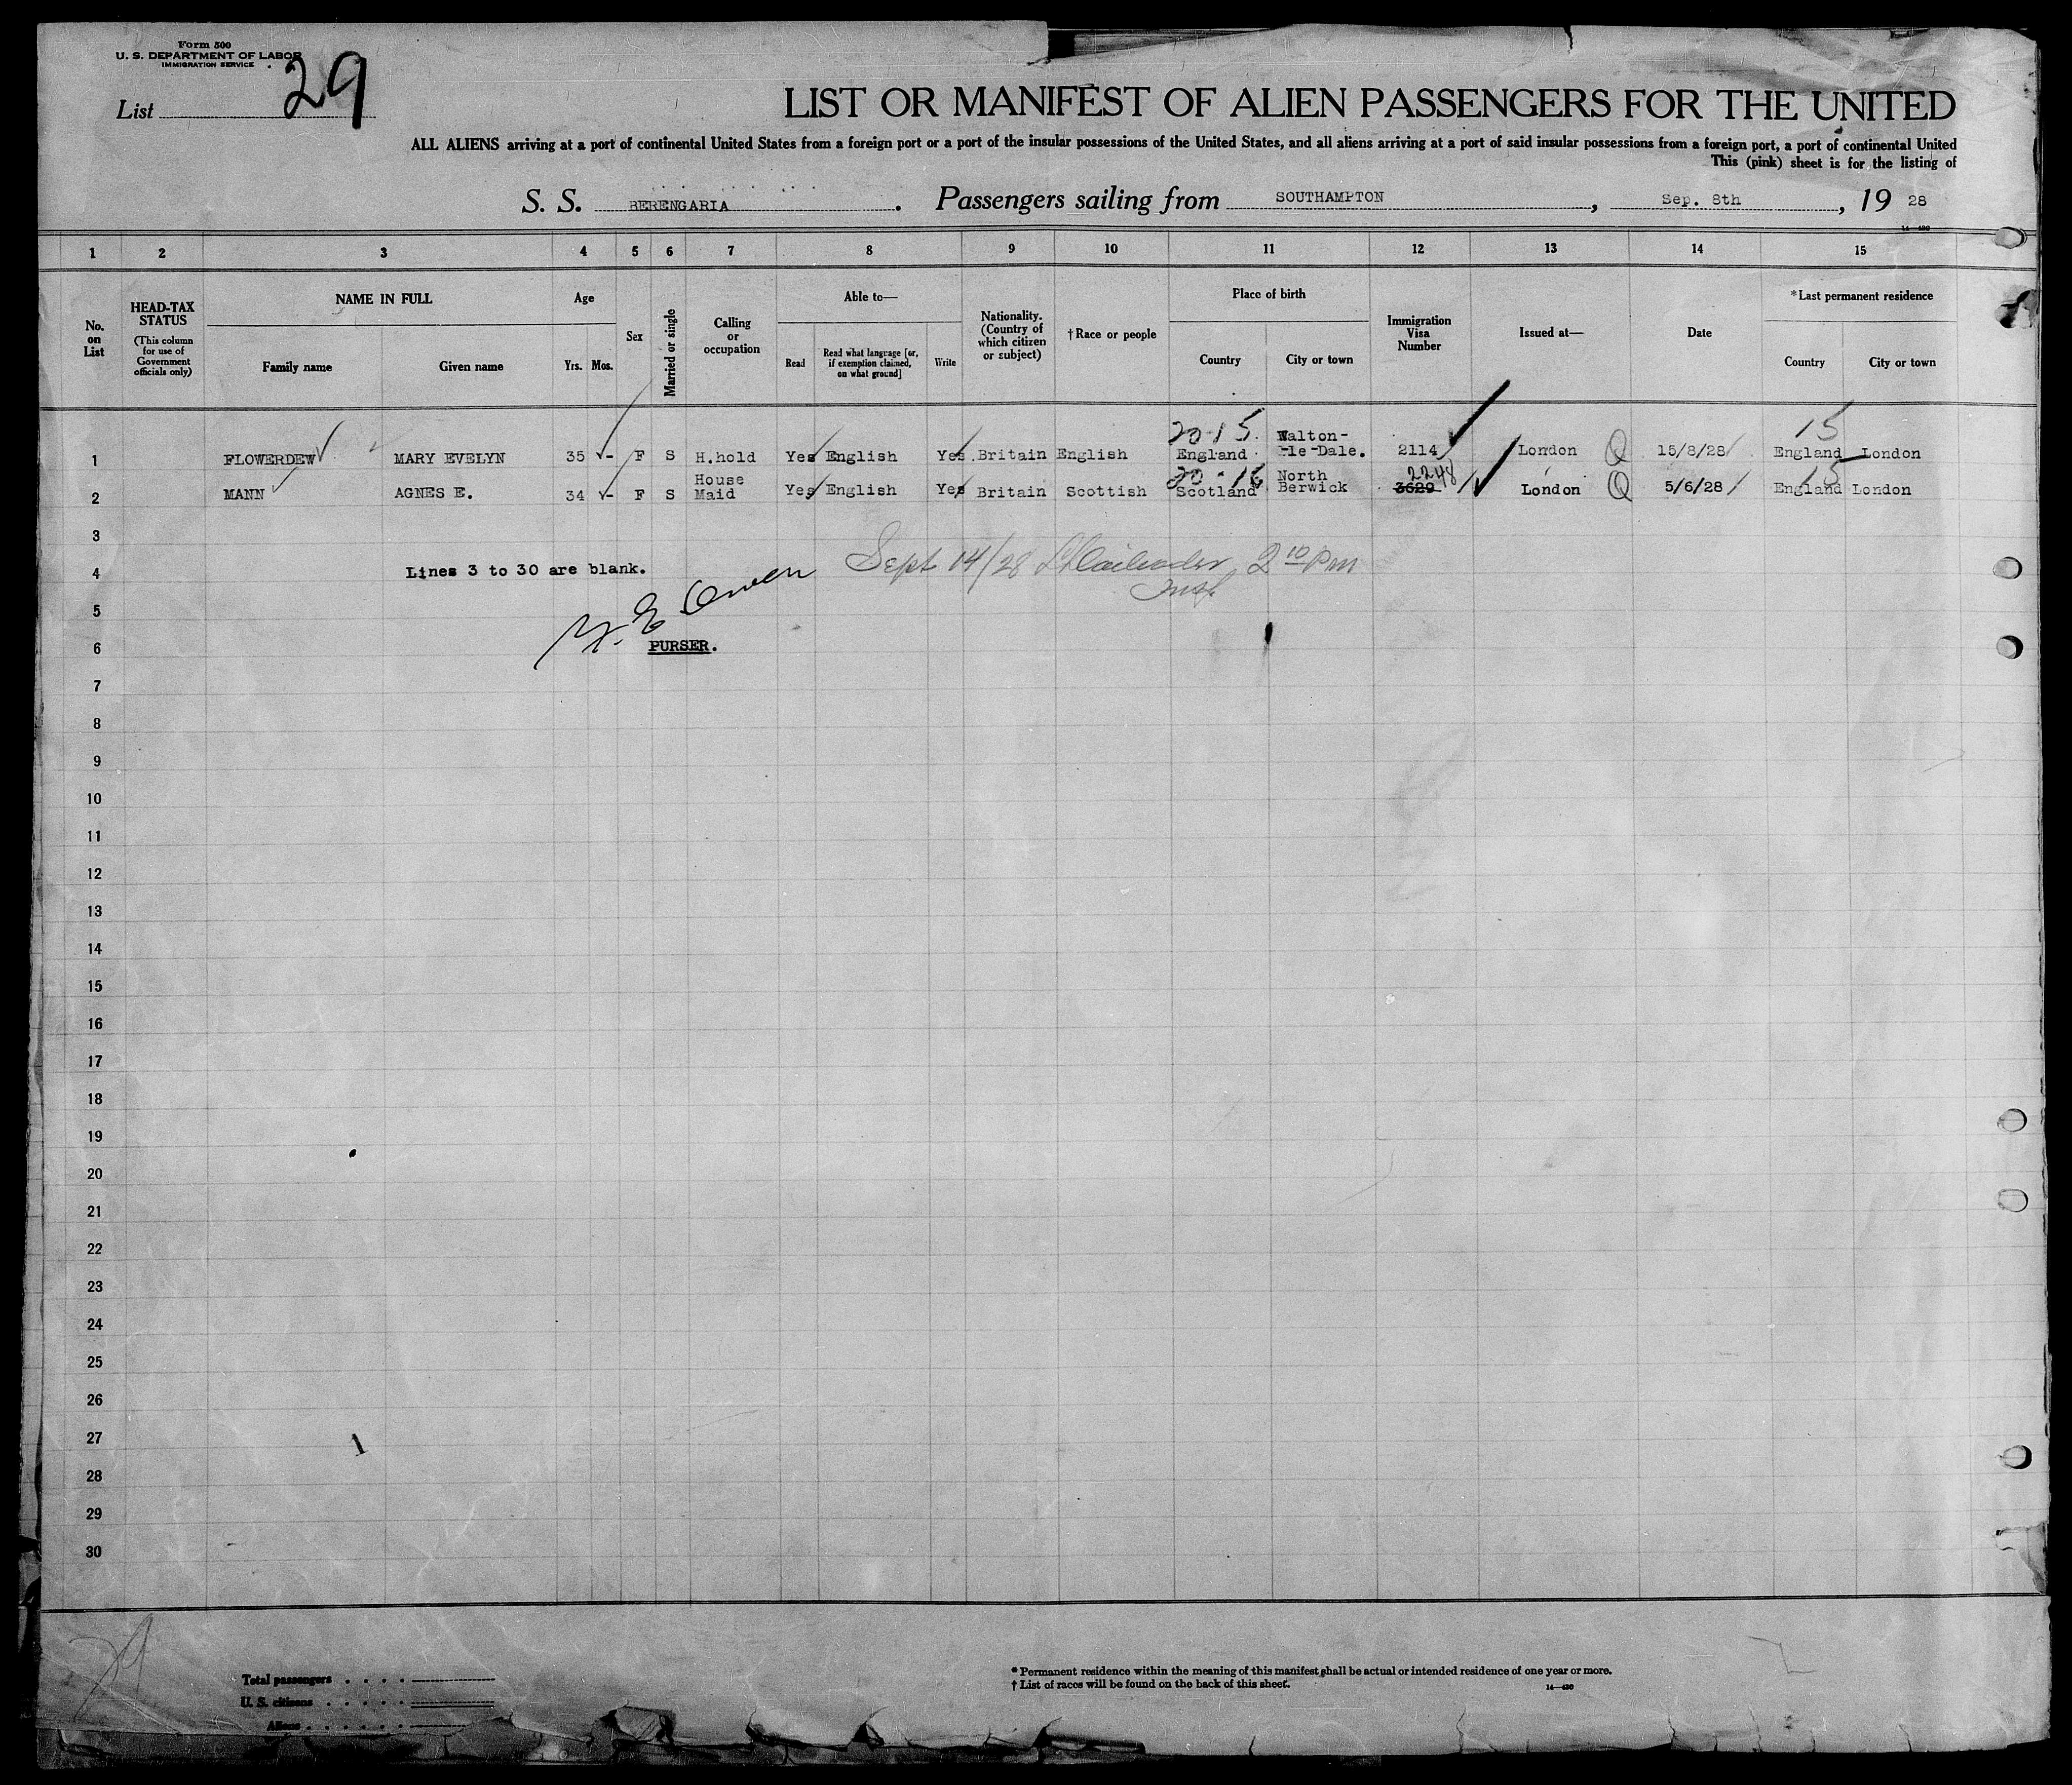 Form 500
U. S. DEPARTMENT OF LABOR
IMMIGRATION SERVICE
List 29
LIST OR MANIFEST OF ALIEN PASSENGERS FOR THE UNITED
ALL ALIENS arriving at a port of continental United States from a foreign port or a port of the insular possessions of the United States, and all aliens arriving at a port of said insular possessions from a foreign port, a port of continental United
This (pink) sheet is for the listing of
S. S. BERENGARIA. Passengers sailing from SOUTHAMPTON, Sep. 8th, 19 28
14—430
1 2 3 4 5 6 7 8 9 10 11 12 13 14 15
No. on List
HEAD-TAX STATUS
(This column for use of Government officials only)
NAME IN FULL
Family name Given name
Age
Yrs. Mos.
Sex
Married or single
Calling or occupation
Able to—
Read
Read what language [or, if exemption claimed, on what ground]
Write
Nationality. (Country of which citizen or subject)
†Race or people
Place of birth
Country City or town
Immigration Visa Number
Issued at—
Date
*Last permanent residence
Country City or town
20-15. Walton- 15
1 FLOWERDEW MARY EVELYN 35 - F S H.hold Yes English Yes Britain English England -le-Dale. 2114 London Q 15/8/28 England London
House 20-16 North 2248 15
2 MANN AGNES E. 34 - F S Maid Yes English Yes Britain Scottish Scotland Berwick 3629 London Q 5/6/28 England London
3
4 Lines 3 to 30 are blank. Sept 14/28 2 10 Pm
Insp.
5 Owen
6 PURSER.
7
8
9
10
11
12
13
14
15
16
17
18
19
20
21
22
23
24
25
26
27
28
29
30
29
Total passengers
U. S. citizens
Aliens
* Permanent residence within the meaning of this manifest shall be actual or intended residence of one year or more.
† List of races will be found on the back of this sheet.
14—430